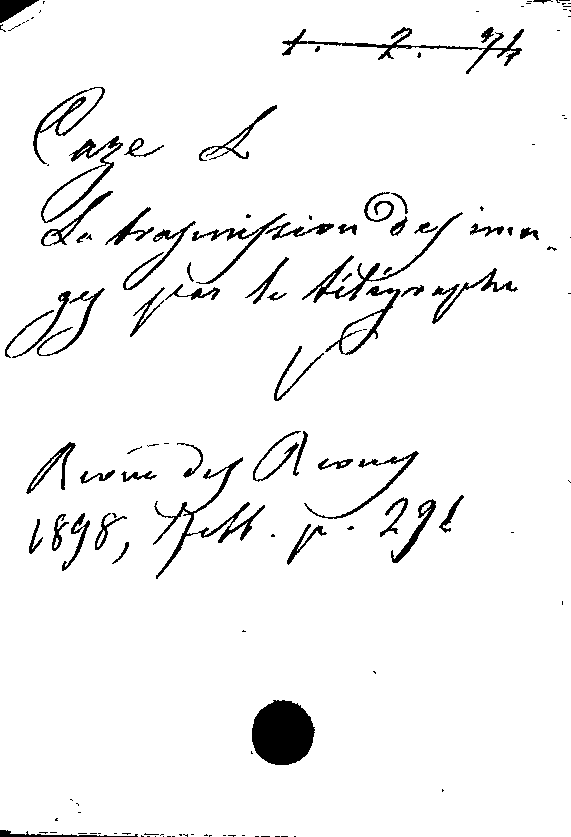 1. 2. 74
Caze L
La trasmission des ima-
ges par le télégraphe
Revue des Revues
1898, Febb. p. 291